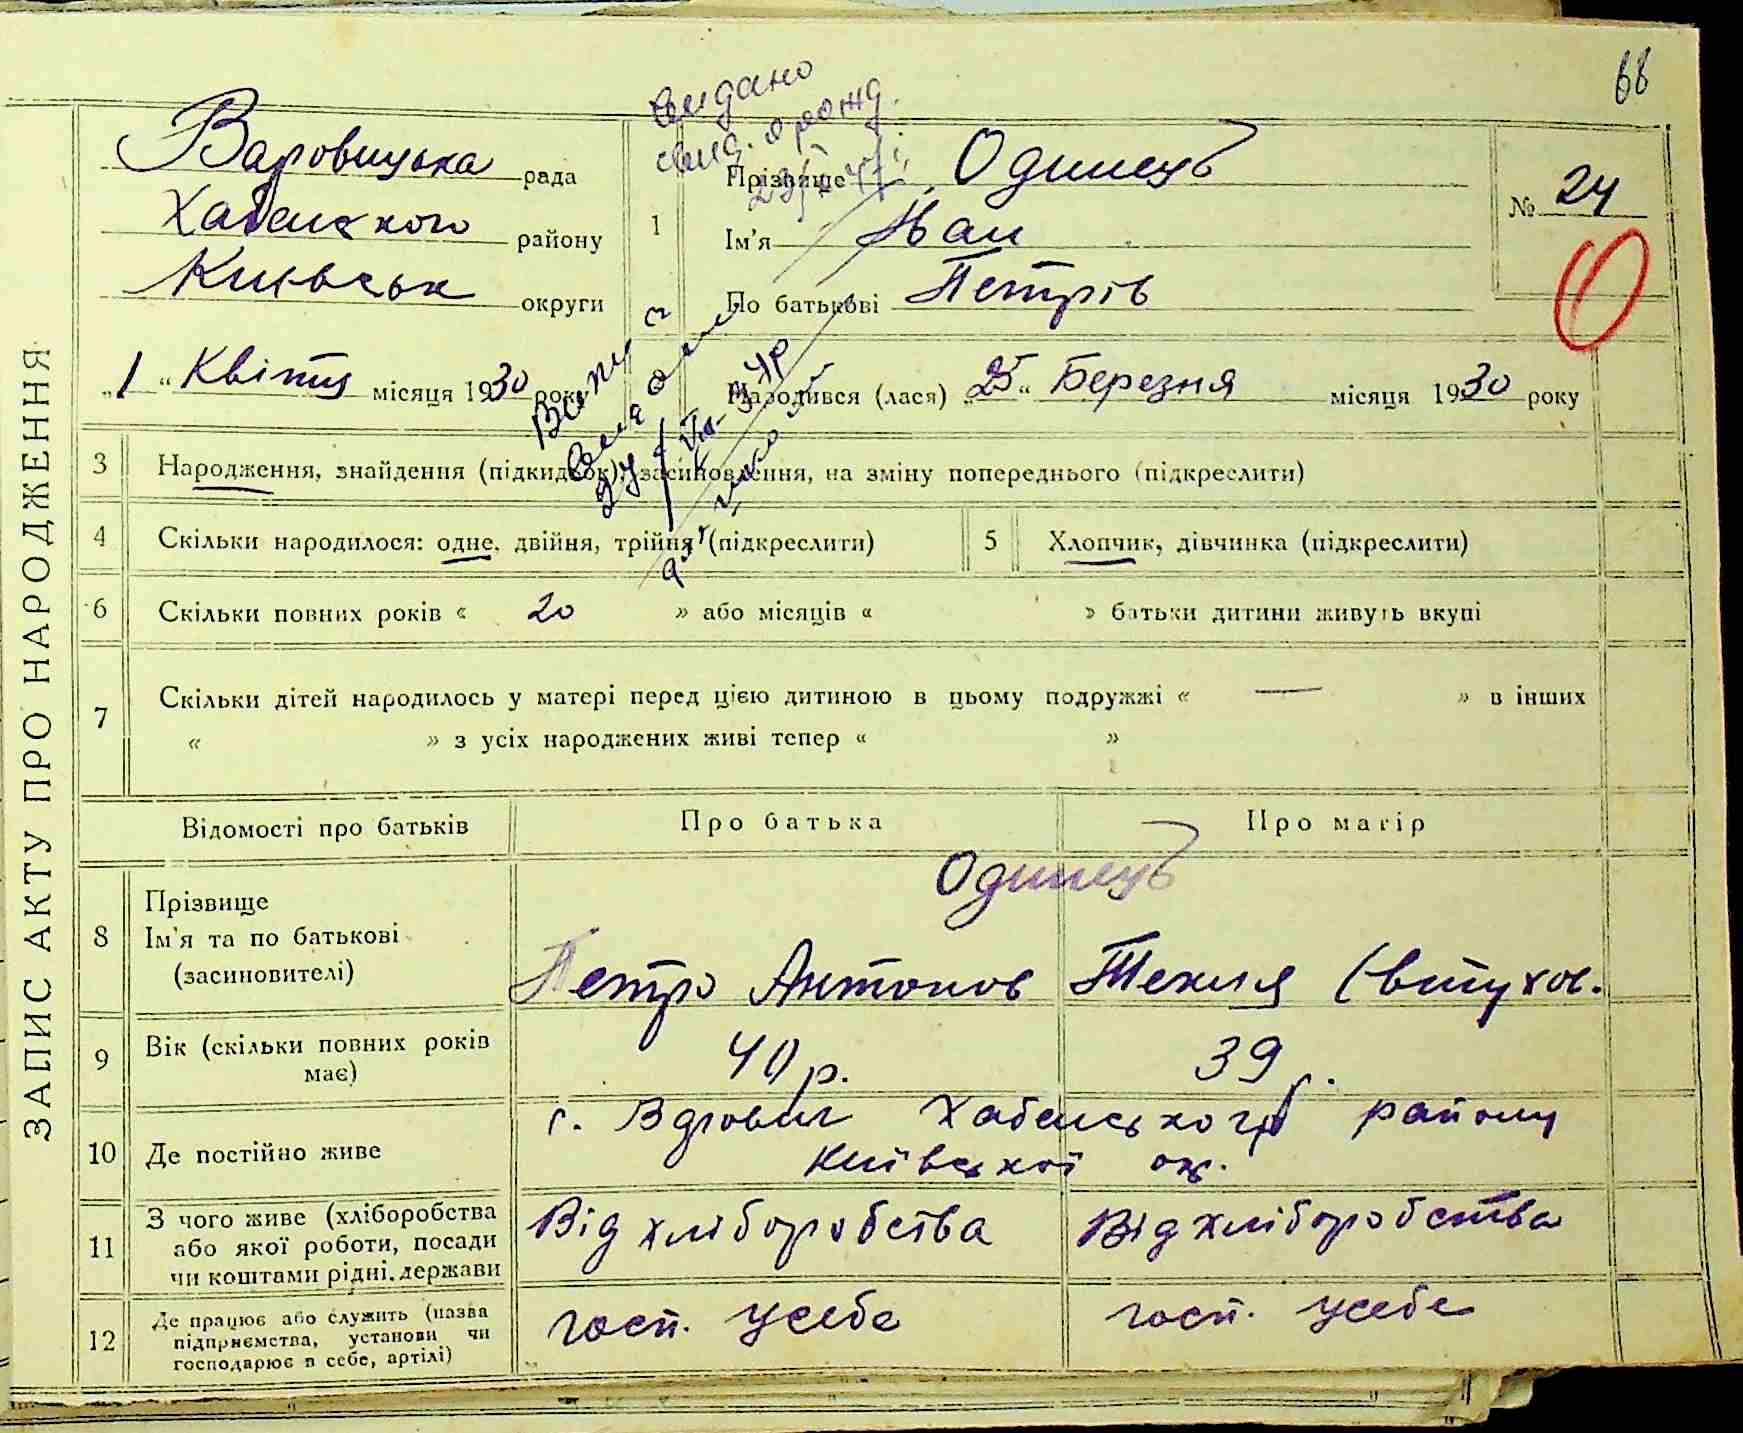 68
ЗАПИС АКТУ ПРО НАРОДЖЕННЯ
Варовицька рада
Хабенского району
Київськ округи
видано
свид. о рожд.
1
Прізвище Одинець
Ім'я Іван
По батькові Петрів
№ 24
"1" Квітня місяця 1930 року
Народився (лася) "25" Березня місяця 1930 року
3 Народження, знайдення (підкидьок), засиновлення, на зміну попереднього (підкреслити)
4 Скільки народилося: одне, двійня, трійня (підкреслити)
5 Хлопчик, дівчинка (підкреслити)
6 Скільки повних років « 20 » або місяців « » батьки дитини живуть вкупі
7 Скільки дітей народилось у матері перед цією дитиною в цьому подружжі « — » в інших
« » з усіх народжених живі тепер « »
Відомості про батьків Про батька Про матір
8 Прізвище
Ім'я та по батькові
(засиновителі)
Одинець
Петро Антонов Текля Євтухов.
9 Вік (скільки повних років
має)
40 р. 39 р.
10 Де постійно живе
с. Варовичі Хабенського району
Київської ок.
11 З чого живе (хліборобства
або якої роботи, посади
чи коштами рідні, держави
Від хліборобства Від хліборобства
12 Де працює або служить (назва
підприємства, установи чи
господарює в себе, артілі)
госп. усебе госп. усебе